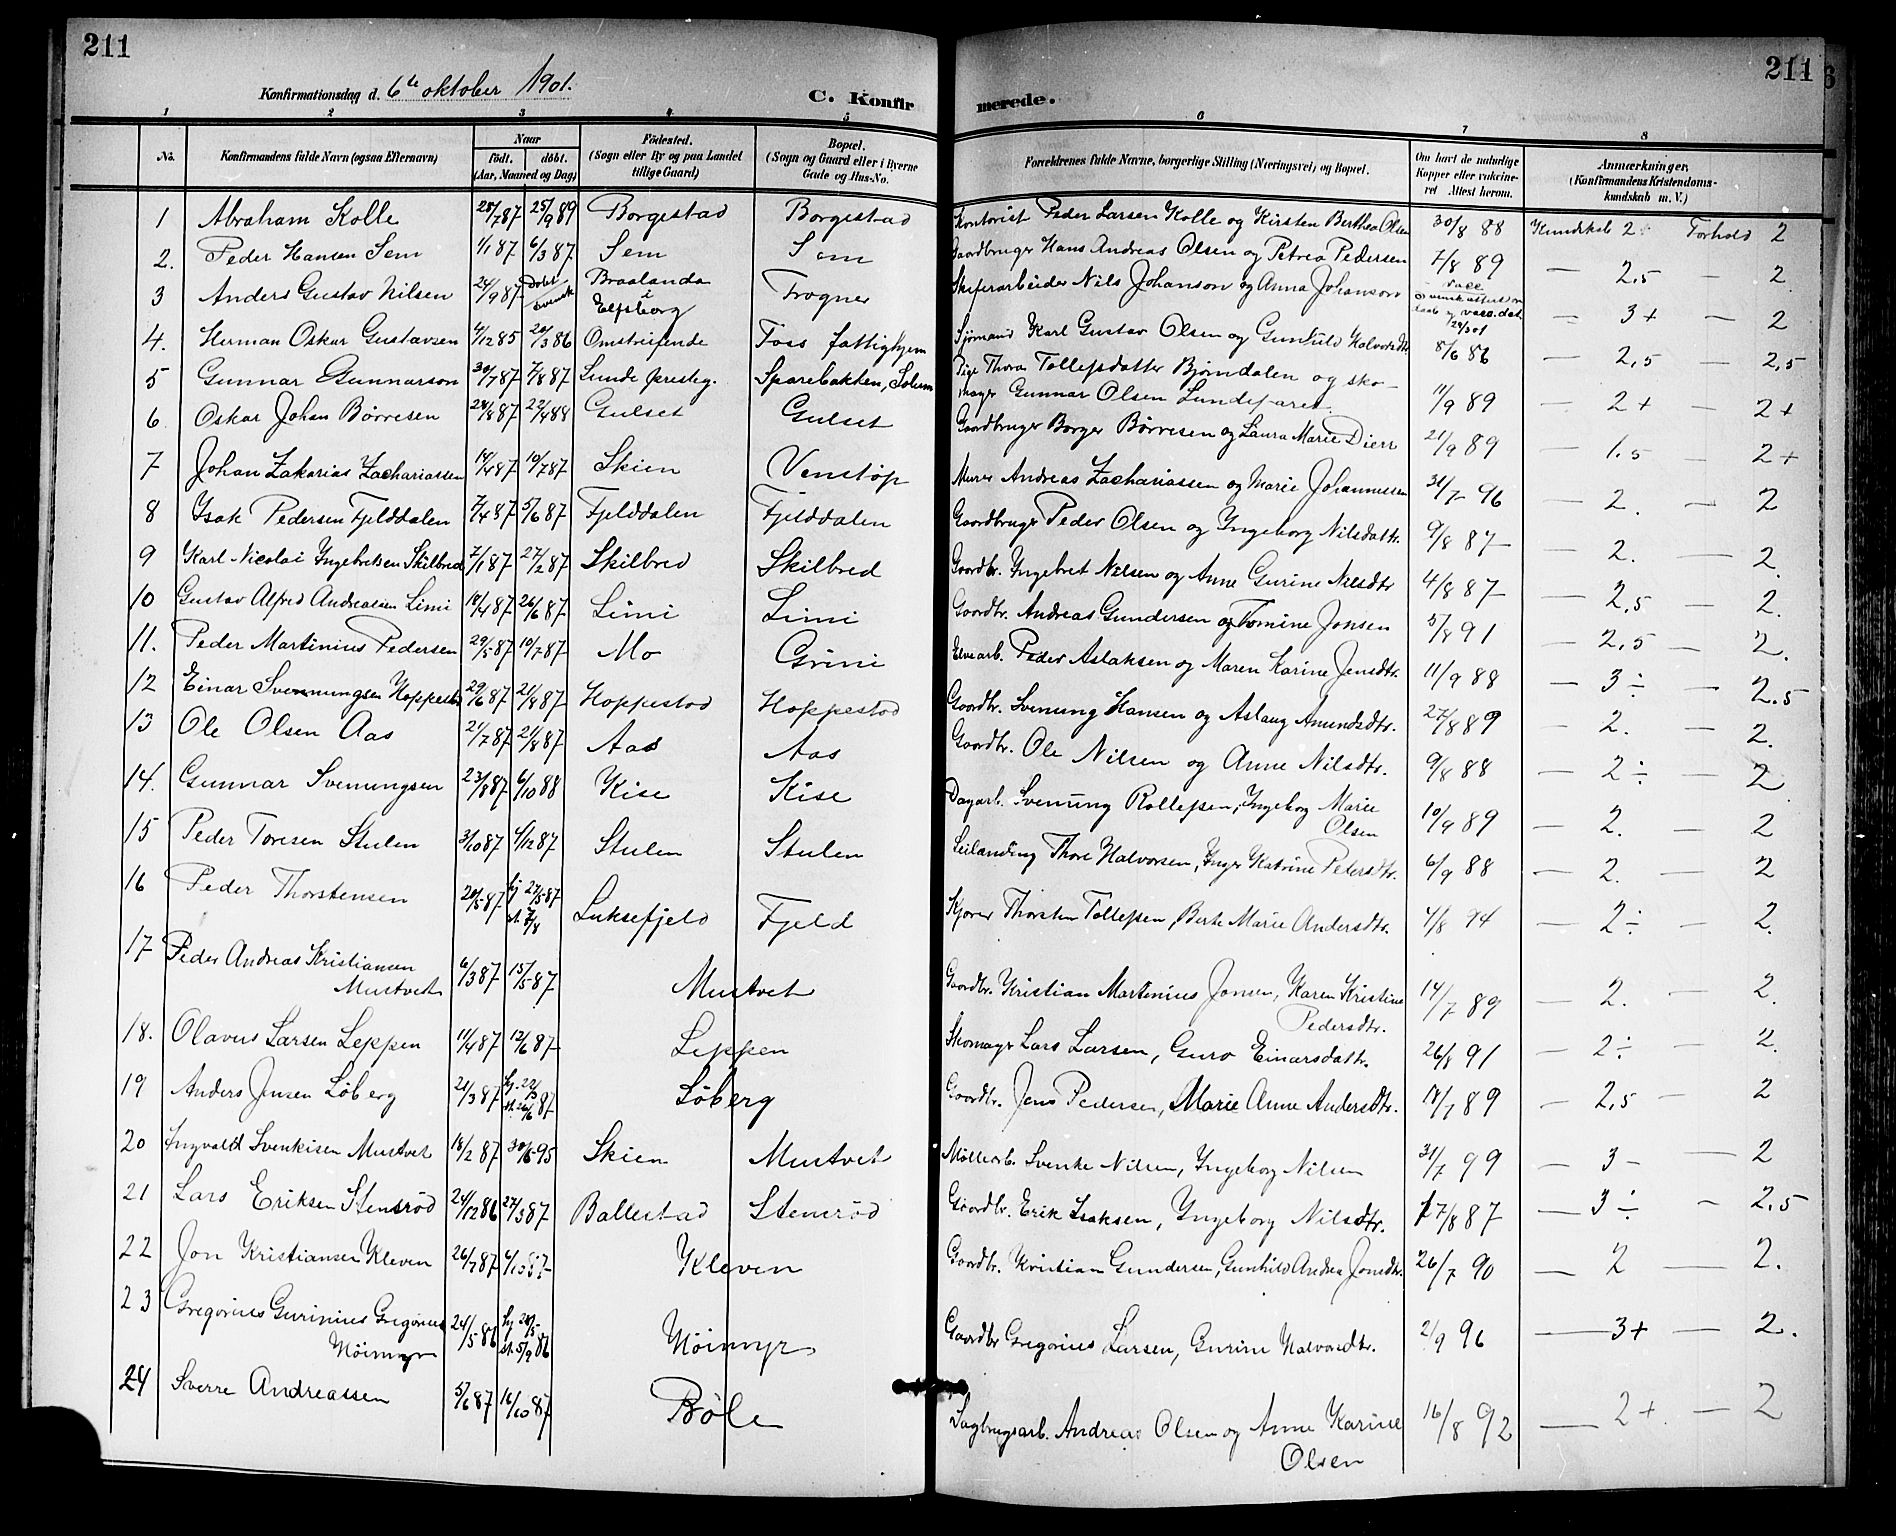 211
211
Konfirmationsdag d. 6te oktober 1901.
C. Konfirmerede.
1 2 3 4 5 6 7 8
No.
Konfirmandens fulde Navn (ogsaa Efternavn)
Naar
født. døbt.
(Aar, Maaned og Dag)
Fødested.
(Sogn eller By og paa Landet
tillige Gaard)
Bopæl.
(Sogn og Gaard eller i Byerne
Gade og Hus-No.
Forældrenes fulde Navne, borgerlige Stilling (Næringsvei) og Bopæl.
Om havt de naturlige
Kopper eller vakcine-
ret Attest herom.
Anmærkninger,
(Konfirmandens Kristendoms-
kundskab m. V.)
1 Abraham Kolle 28/7 87 25/9 89 Borgestad Borgestad Kontorist Peder Larsen Kolle og Kirsten Berthea Olsen 30/8 88 Kundskab 2 Forhold 2
2. Peder Hansen Sem 1/1 87 6/3 87 Sem Sem Gaardbruger Hans Andreas Olsen og Petrea Pedersen 7/8 89 — 2,5 — 2
3 Anders Gustav Nilsen 24/9 87 Døbt Svensk Braalanda i Elfsborg Trogner Skiferarbeider Nils Johanson og Anna Johanson — 3+ — 2
4. Herman Oskar Gustavsen 4/12 85 20/3 86 Omstreifende Foss fattighjem Sjømand Karl Gustav Olsen og Gunhild Halvorsdtr. 8/6 86 — 2,5 — 2,5
5 Gunnar Gunnarson 30/7 87 7/8 87 Lunde prestg. Sparebakken, Solum Pige Thora Tollefsdatter Bjørndalen og sko-
mager Gunnar Olsen Lundefaret. 11/9 89 — 2+ — 2+
6 Oskar Johan Børresen 24/8 87 22/4 88 Gulset Gulset Gaardbruger Borger Børresen og Laura Marie Dierr 21/9 89 — 1.5 — 2+
7 Johan Zakarias Zachariassen 14/4 87 10/7 87 Skien Venstøp Murer Andreas Zachariassen og Marie Johannessen 31/7 96 — 2. — 2
8 Isak Pedersen Fjelddalen 7/4 87 5/6 87 Fjelddalen Fjelddalen Gaardbruger Peder Olsen og Ingeborg Nilsdattr. 9/8 87 — 2. — 2.
9 Karl Nicolai Ingebretsen Skilbred 7/1 87 27/2 87 Skilbred Skilbred Gaardbr. Ingebret Nilsen og Anne Gurine Nilsdtr 4/8 87 — 2,5 — 2.
10 Gustav Alfred Andreassen Limi 18/4 87 26/6 87 Limi Limi Gaardbr. Andreas Gundersen og Tomine Jonsen 5/8 91 — 2,5 — 2.
11. Peder Martinius Pedersen 29/5 87 10/7 87 Mo Grini Elvearb. Peder Aslaksen og Maren Karine Jensdtr. 11/9 88 — 3÷ — 2.5
12 Einar Svennungsen Hoppestad 29/6 87 21/8 87 Hoppestad Hoppestad Gaardbr. Svenung Hansen og Aslaug Amundsdtr. 27/8 89 — 2. — 2.
13 Ole Olsen Aas 21/7 87 21/8 87 Aas Aas Gaardbr. Ole Nilsen og Anne Nilsdtr. 9/8 88 — 2÷ — 2
14. Gunnar Svenungsen 23/8 87 6/10 88 Kise Kise Dagarb. Svenung Rollefsen, Ingeborg Marie
Olsen 10/9 89 — 2. — 2
15 Peder Toresen Stulen 3/10 87 4/12 87 Stulen Stulen Leilænding Thore Halvorsen, Inger Katrine Petersdtr. 6/9 88 — 2. — 2
16 Peder Thorstensen 20/5 87 hj 27/5 87 st. 7/8 Luksefjeld Fjeld Kjører Thorsten Tollefsen, Berte Marie Andersdtr. 4/8 94 — 2÷ — 2.
17 Peder Andreas Kristiansen
Mustvet 6/3 87 15/5 87 Mustvet Gaardbr. Kristian Martinius Jonsen, Karen Kristine
Pedersdtr. 14/7 89 — 2. — 2.
18. Olavus Larsen Leppen 11/4 87 12/6 87 Leppen Skomager Lars Larsen, Guro Einarsdattr. 26/8 91 — 2÷ — 2.
19 Anders Jensen Løberg 21/3 87 hj. 22/3 st. 26/6 87 Løberg Gaardbr. Jens Pedersen, Marie Anne Andersdtr. 18/7 89 — 2,5 — 2
20 Ingvald Svenkisen Mustvet 18/2 87 30/6 95 Skien Mustvet Møllearb. Svenke Nilsen, Ingeborg Nilsen 31/7 99 — 3- — 2
21 Lars Eriksen Stensrød 24/12 86 27/3 87 Ballestad Stensrød Gaardbr. Erik Isaksen, Ingeborg Nilsdtr. 17/8 87 — 3÷ — 2,5
22 Jon Kristiansen Kleven 26/7 87 Kleven Gaardbr. Kristian Gundersen, Gunhild Andrea Jonsdtr. 26/7 90 — 2 — 2.
23 Gregorius Gurinius Gregorius
Møimyr 24/5 86 hj 28/5 st. 5/9 86 Møimyr Gaardbr Gregorius Larsen, Gurine Halvorsdtr. 2/9 96 — 3+ — 2.
24 Sverre Andreassen 5/6 87 16/10 87 Bøle Sagbrugsarb. Andreas Olsen og Anne Karine
Olsen 16/8 92 — 2+ — 2